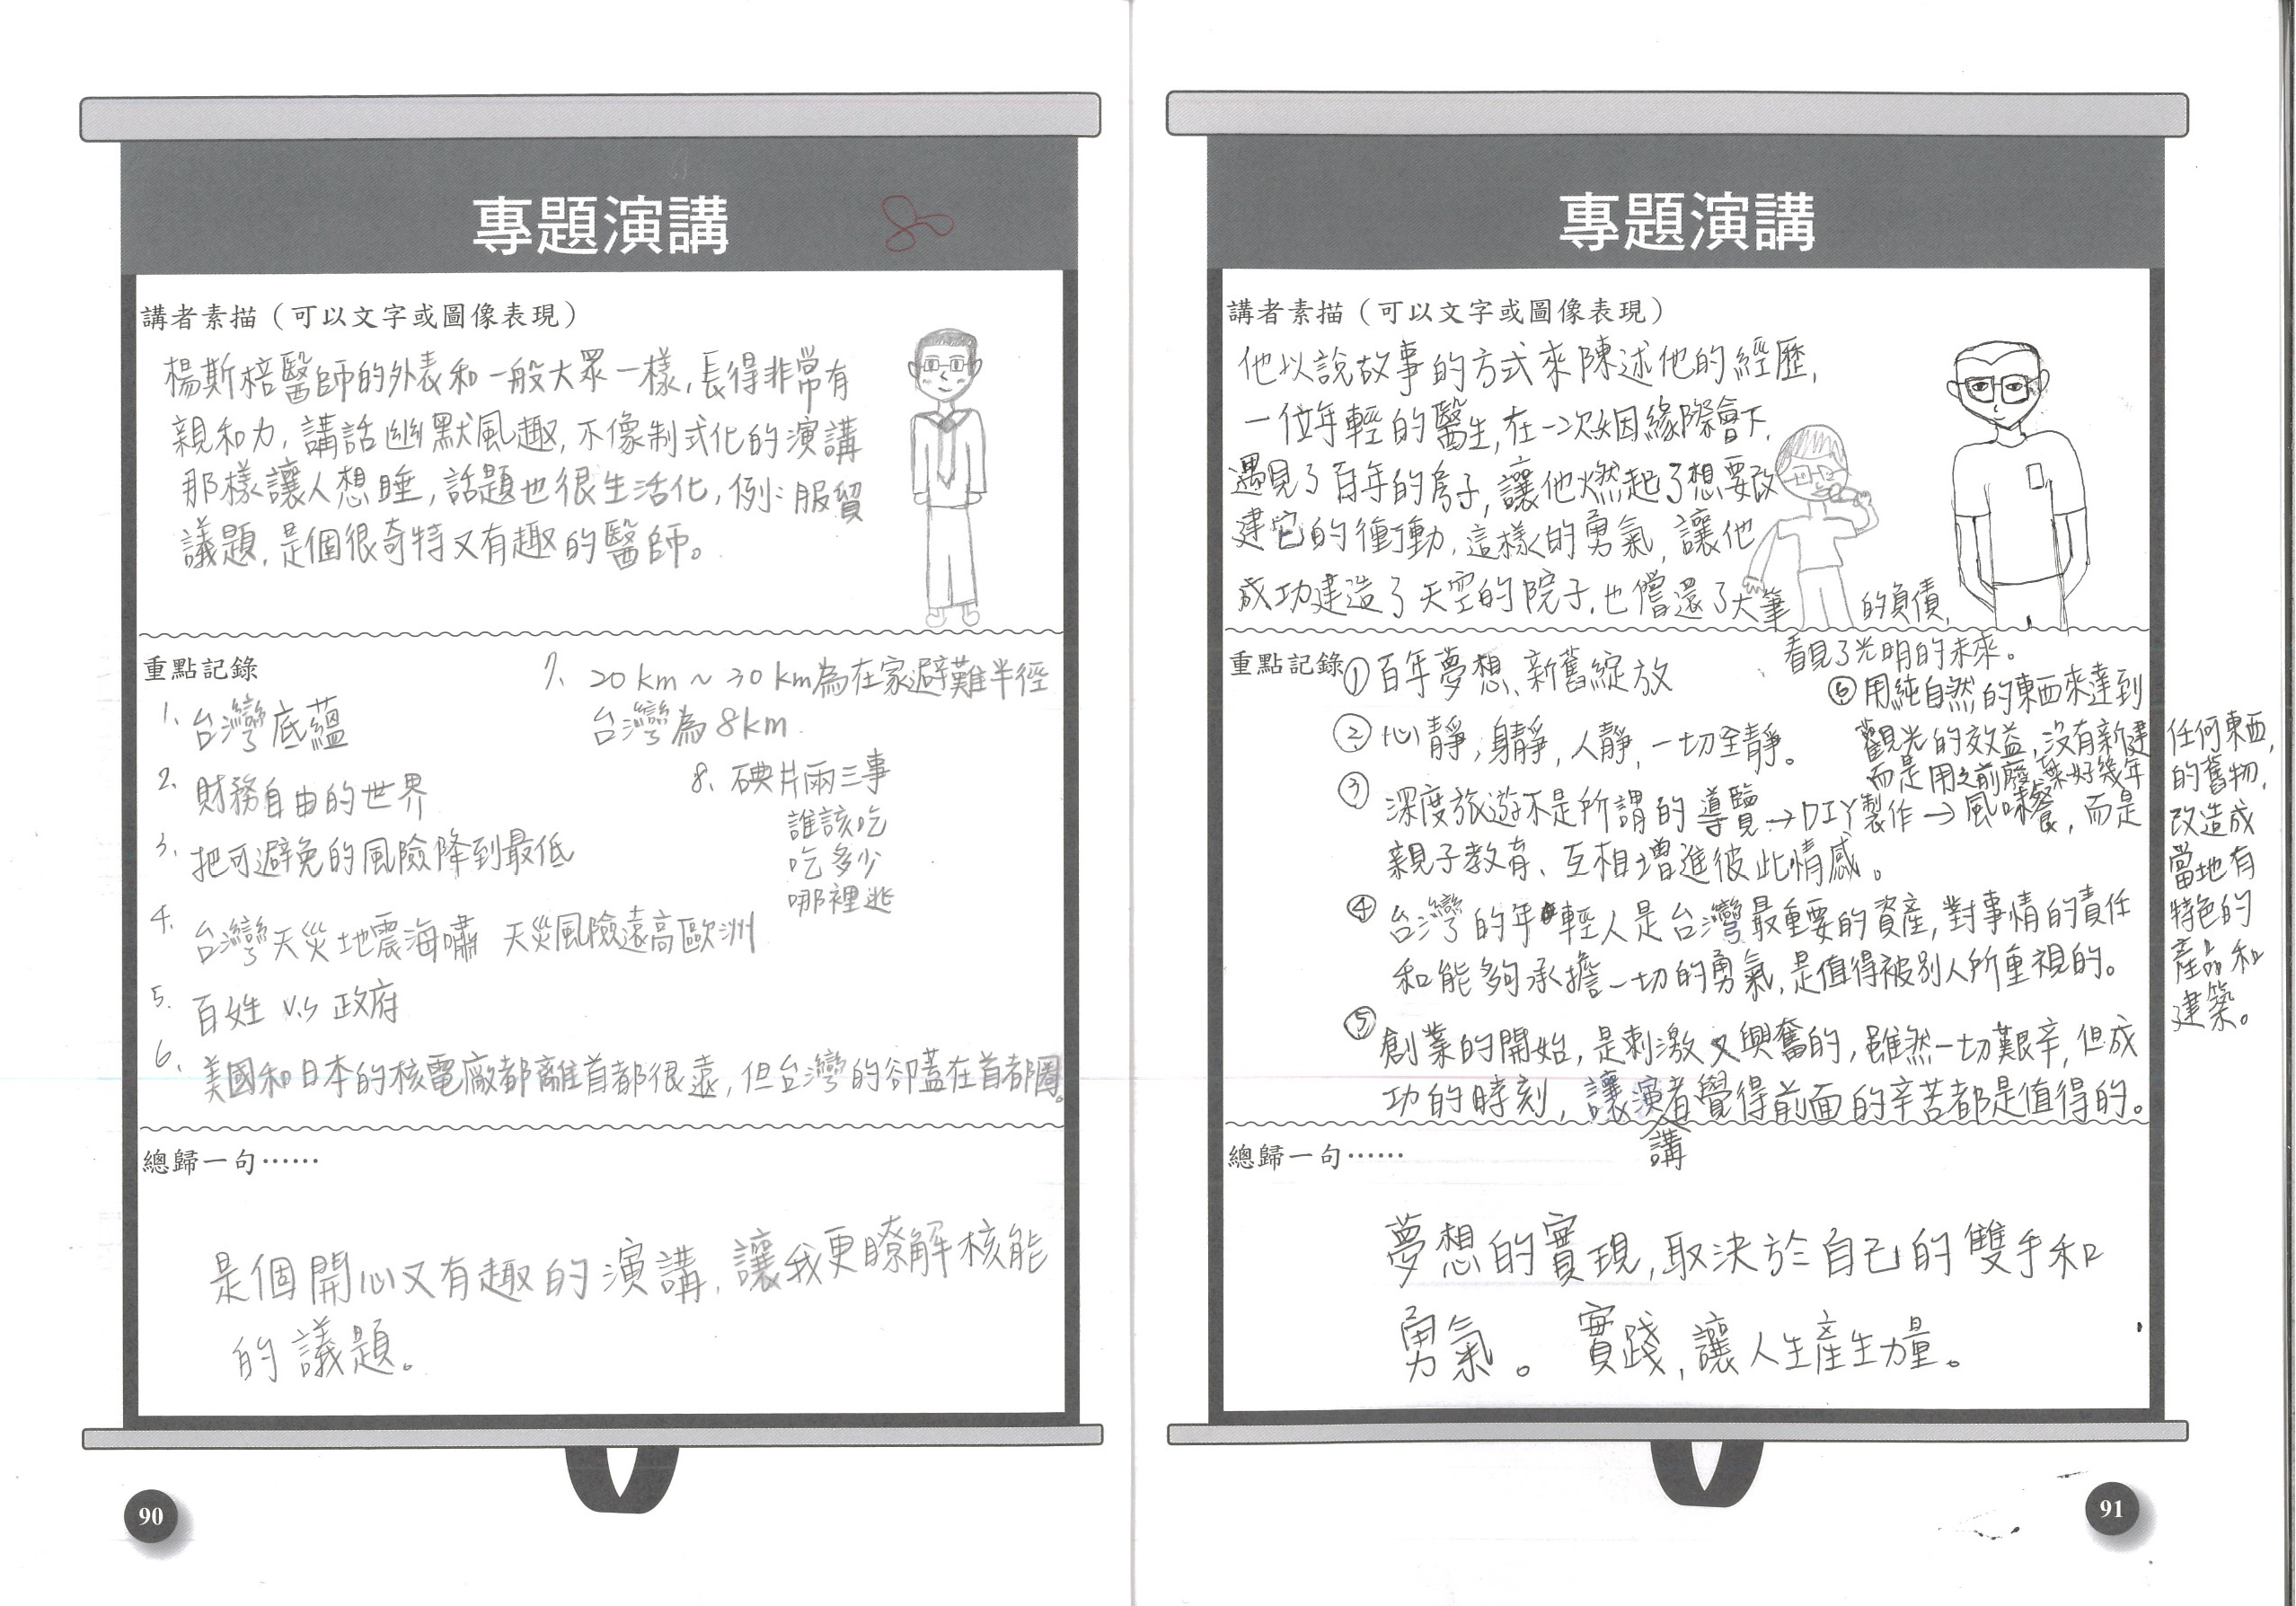 專題演講
講者素描（可以文字或圖像表現）
楊斯棓醫師的外表和一般大眾一樣，長得非常有
親和力，講話幽默風趣，不像制式化的演講
那樣讓人想睡，話題也很生活化，例：服貿
議題，是個很奇特又有趣的醫師。
重點記錄
1. 台灣底蘊
2. 財務自由的世界
3. 把可避免的風險降到最低
4. 台灣天災地震海嘯 天災風險遠高歐洲
5. 百姓 v.s 政府
6. 美國和日本的核電廠都離首都很遠，但台灣的卻蓋在首都圈。
7. 20 km ~ 30 km為在家避難半徑
台灣為8km
8. 碘片兩三事
誰該吃
吃多少
哪裡逃
總歸一句……
是個開心又有趣的演講，讓我更瞭解核能
的議題。
90
專題演講
講者素描（可以文字或圖像表現）
他以說故事的方式來陳述他的經歷，
一位年輕的醫生，在一次因緣際會下，
遇見了百年的房子，讓他燃起了想要改
建它的衝動，這樣的勇氣，讓他
成功建造了天空的院子，也償還了大筆的負債，
看見了光明的未來。
重點記錄
① 百年夢想、新舊綻放
② 心靜，身靜，人靜，一切全靜。
③ 深度旅遊不是所謂的導覽→DIY製作→風味餐，而是
親子教育、互相增進彼此情感。
④ 台灣的年輕人是台灣最重要的資產，對事情的責任
和能夠承擔一切的勇氣，是值得被別人所重視的。
⑤ 創業的開始，是刺激又興奮的，雖然一切艱辛，但成
功的時刻，讓演講者覺得前面的辛苦都是值得的。
⑥ 用純自然的東西來達到
觀光的效益，沒有新建任何東西，
而是用之前廢棄好幾年的舊物，
改造成
當地有
特色的
產品和
建築。
總歸一句……
夢想的實現，取決於自己的雙手和
勇氣。實踐，讓人生產生力量。
91